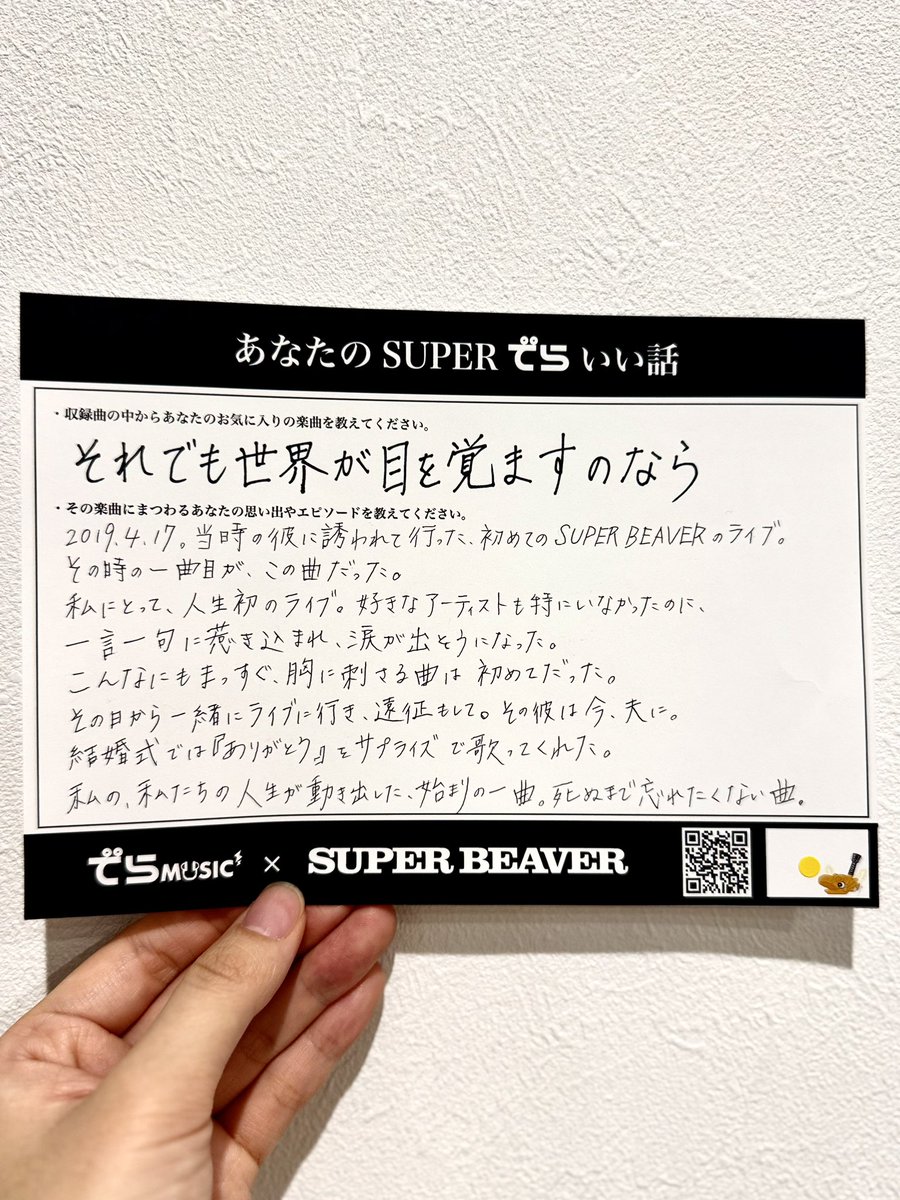 あなたの SUPER でら いい話
・収録曲の中からあなたのお気に入りの楽曲を教えてください。
それでも世界が目を覚ますのなら
・その楽曲にまつわるあなたの思い出やエピソードを教えてください。
2019.4.17。当時の彼に誘われて行った、初めてのSUPER BEAVERのライブ。
その時の一曲目が、この曲だった。
私にとって、人生初のライブ。好きなアーティストも特にいなかったのに、
一言一句に惹き込まれ、涙が出そうになった。
こんなにもまっすぐ、胸に刺さる曲は初めてだった。
その日から一緒にライブに行き、遠征もして。その彼は今、夫に。
結婚式では『ありがとう』をサプライズで歌ってくれた。
私の、私たちの人生が動き出した、始まりの一曲。死ぬまで忘れたくない曲。
でらMUSIC × SUPER BEAVER